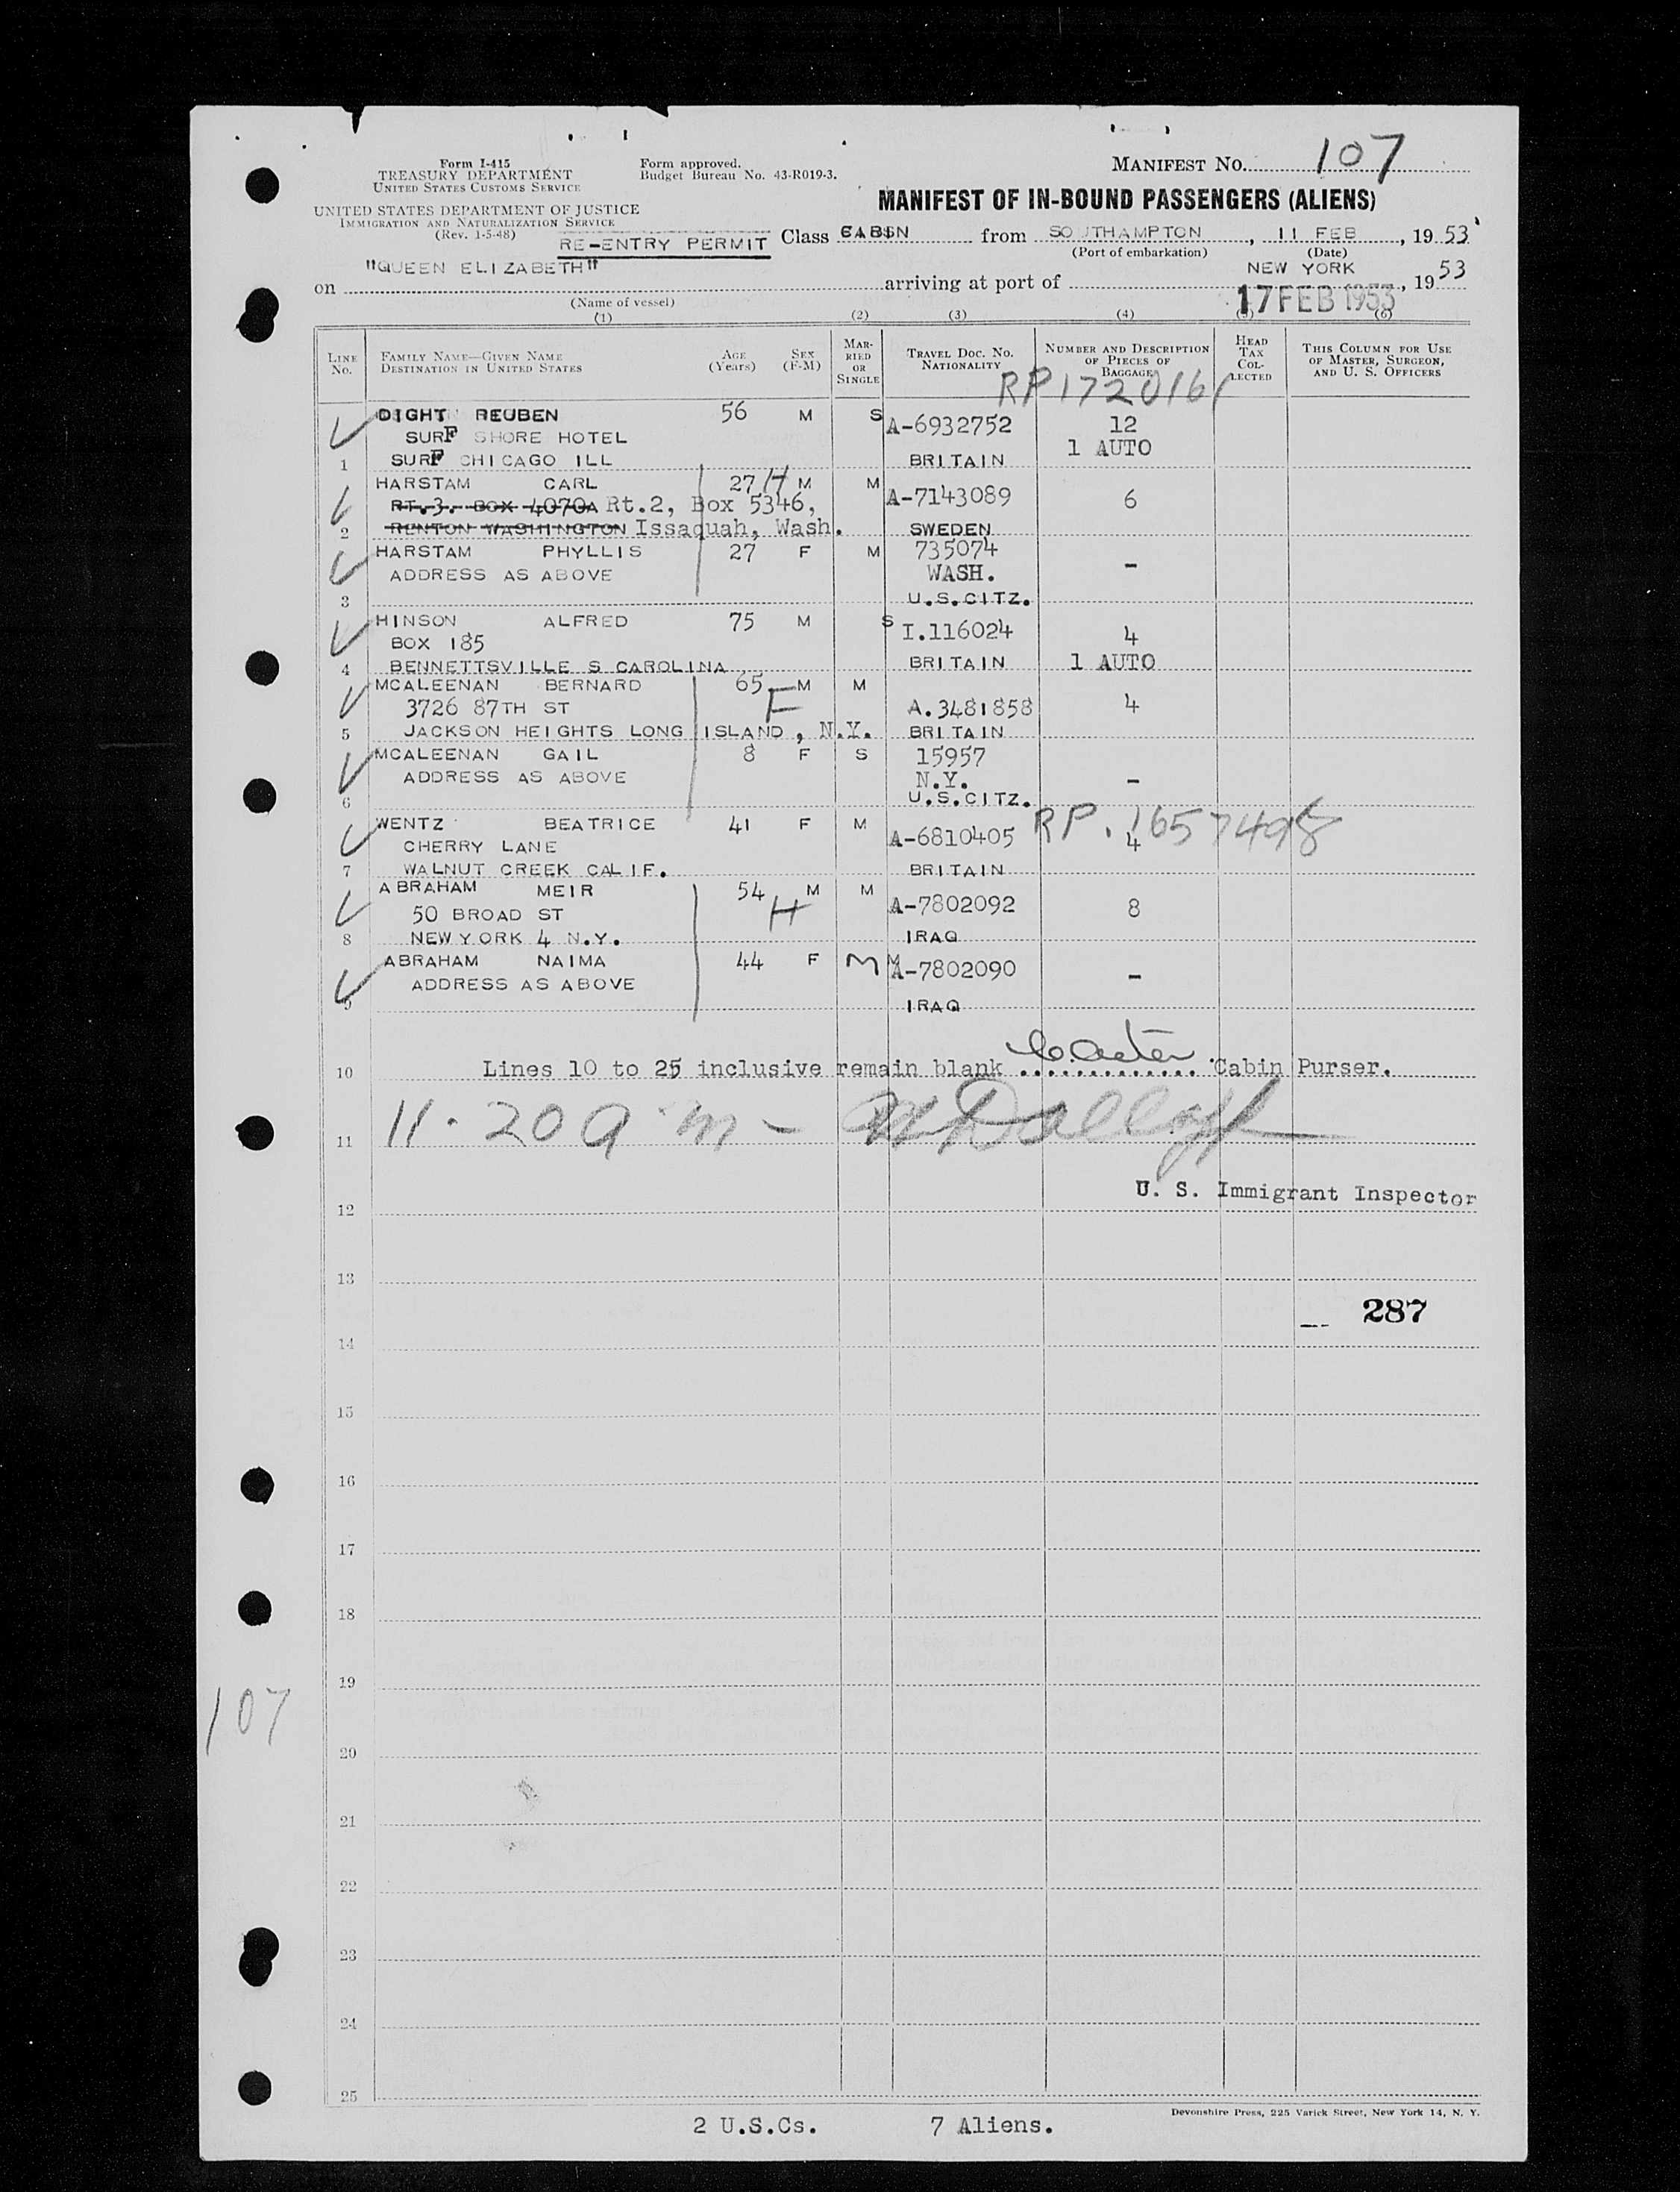 Form I-415
TREASURY DEPARTMENT
UNITED STATES CUSTOMS SERVICE
UNITED STATES DEPARTMENT OF JUSTICE
IMMIGRATION AND NATURALIZATION SERVICE
(Rev. 1-5-48)
Form approved.
Budget Bureau No. 43-R019-3.
MANIFEST No. 107
MANIFEST OF IN-BOUND PASSENGERS (ALIENS)
RE-ENTRY PERMIT Class CABIN from SOUTHAMPTON, 11 FEB, 19 53
(Port of embarkation) (Date)
on "QUEEN ELIZABETH" arriving at port of NEW YORK, 19 53
(Name of vessel) 17 FEB 1953
(1) (2) (3) (4) (5) (6)
LINE No. FAMILY NAME—GIVEN NAME DESTINATION IN UNITED STATES AGE (Years) SEX (F-M) MARRIED OR SINGLE TRAVEL DOC. NO. NATIONALITY NUMBER AND DESCRIPTION OF PIECES OF BAGGAGE HEAD TAX COLLECTED THIS COLUMN FOR USE OF MASTER, SURGEON, AND U. S. OFFICERS
RP1720161
DIGHT REUBEN 56 M S A-6932752 12
SURF SHORE HOTEL 1 AUTO
1 SURF CHICAGO ILL BRITAIN
HARSTAM CARL 27 H M M A-7143089 6
RT.3. BOX 4070A Rt.2, Box 5346,
2 RENTON WASHINGTON Issaquah, Wash. SWEDEN
HARSTAM PHYLLIS 27 F M 735074
ADDRESS AS ABOVE WASH. -
3 U.S.CITZ.
HINSON ALFRED 75 M S I.116024 4
BOX 185
4 BENNETTSVILLE S CAROLINA BRITAIN 1 AUTO
MCALEENAN BERNARD 65 M M
3726 87TH ST F A.3481858 4
5 JACKSON HEIGHTS LONG ISLAND, N.Y. BRITAIN
MCALEENAN GAIL 8 F S 15957
ADDRESS AS ABOVE N.Y. -
6 U.S.CITZ.
WENTZ BEATRICE 41 F M A-6810405 4 RP.1657498
CHERRY LANE
7 WALNUT CREEK CALIF. BRITAIN
ABRAHAM MEIR 54 M M A-7802092 8
50 BROAD ST H
8 NEW YORK 4 N.Y. IRAQ
ABRAHAM NAIMA 44 F M M A-7802090 -
ADDRESS AS ABOVE
9 IRAQ
10 Lines 10 to 25 inclusive remain blank ............. Cabin Purser.
11 11.20 a.m -
U. S. Immigrant Inspector
12
13
287
14
15
16
17
18
19
107
20
21
22
23
24
25
Devonshire Press, 225 Varick Street, New York 14, N. Y.
2 U.S.Cs. 7 Aliens.